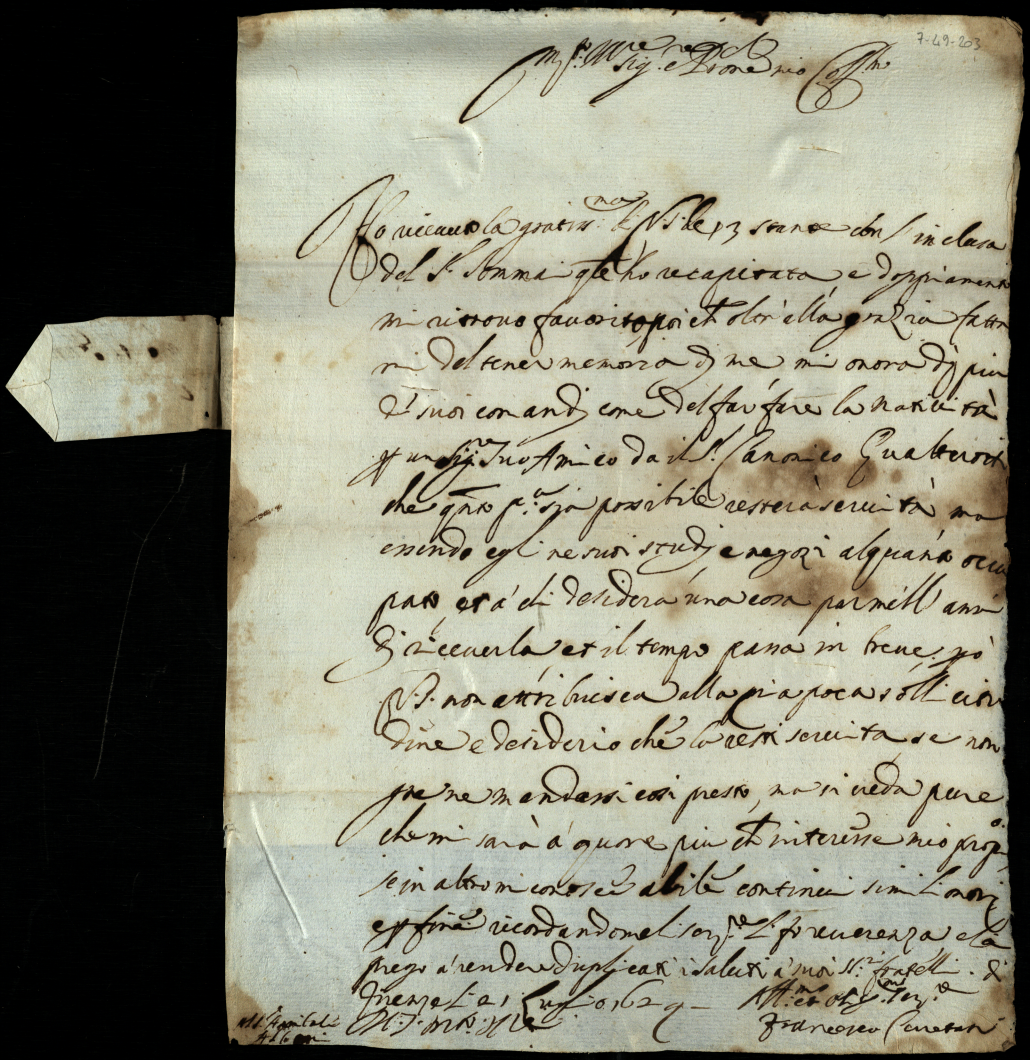 7-49-203
Sig.r e Prone mio
Ho riceuto la gratiss.ma di V.S. de 13 stante con l'inclusa
del S.r Somma: q.le ho recapitata, e doppiamente
mi ritrovo favorito, poi ch' oltr' alla grazia fatta
mi del tener memoria di me mi onora di piu
de' suoi comandi come del far fare la natività
p un sig.r suo Amico da il S.r Canonico Gualterotti
che q.nto p.a sia possibile resterà servita, ma
essendo egli ne suoi studj, e negozi alquanto occu
pato, et à chi desidera una cosa par mill' anni
di riceverla et il tempo passa in breve, pò
V.S. non attribuisca alla mia poca sollicitu
dine e desiderio che la resti servita se non
gne ne mandassi così presto, ma si creda pure
che mi sarà à quore piu ch' interesse mio prop.o
se in altro mi conosce abile continui simil' onori
e p fine ricordandomeli ser.re li fò reverenza e la
prego à rendere duplicati i saluti à suoi SS.ri fratelli. di
Firenze li 21 Luglio 1629
Aff.mo et ser.re
Francesco